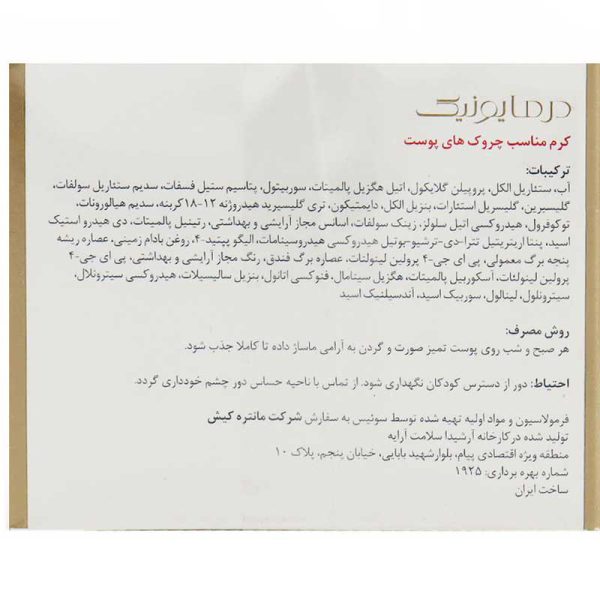 درمایونیک
کرم مناسب چروک های پوست
ترکیبات:
آب، ستئاریل الکل، پروپیلن گلایکول، اتیل هگزیل پالمیتات، سوربیتول، پتاسیم ستیل فسفات، سدیم ستئاریل سولفات،
گلیسیرین، گلیسریل استئارات، بنزیل الکل، دایمتیکون، تری گلیسیرید هیدروژنه ۱۲-۱۸ کربنه، سدیم هیالورونات،
توکوفرول، هیدروکسی اتیل سلولز، زینک سولفات، اسانس مجاز آرایشی و بهداشتی، رتینیل پالمیتات، دی هیدرو استیک
اسید، پنتا اریتریتیل تترا-دی-ترشیو-بوتیل هیدروکسی هیدروسینامات، الیگو پپتید-۴، روغن بادام زمینی، عصاره ریشه
پنجه برگ معمولی، پی ای جی-۴ پرولین لینولتات، عصاره برگ فندق، رنگ مجاز آرایشی و بهداشتی، پی ای جی-۴
پرولین لینولئات، آسکوربیل پالمیتات، هگزیل سینامال، فنوکسی اتانول، بنزیل سالیسیلات، هیدروکسی سیترونلال،
سیترونلول، لینالول، سوربیک اسید، آندسیلنیک اسید
روش مصرف:
هر صبح و شب روی پوست تمیز صورت و گردن به آرامی ماساژ داده تا کاملا جذب شود.
احتیاط: دور از دسترس کودکان نگهداری شود. از تماس با ناحیه حساس دور چشم خودداری گردد.
فرمولاسیون و مواد اولیه تهیه شده توسط سوئیس به سفارش شرکت مانتره کیش
تولید شده در کارخانه آرشیدا سلامت آرایه
منطقه ویژه اقتصادی پیام، بلوار شهید بابایی، خیابان پنجم، پلاک ۱۰
شماره بهره برداری: ۱۹۲۵
ساخت ایران